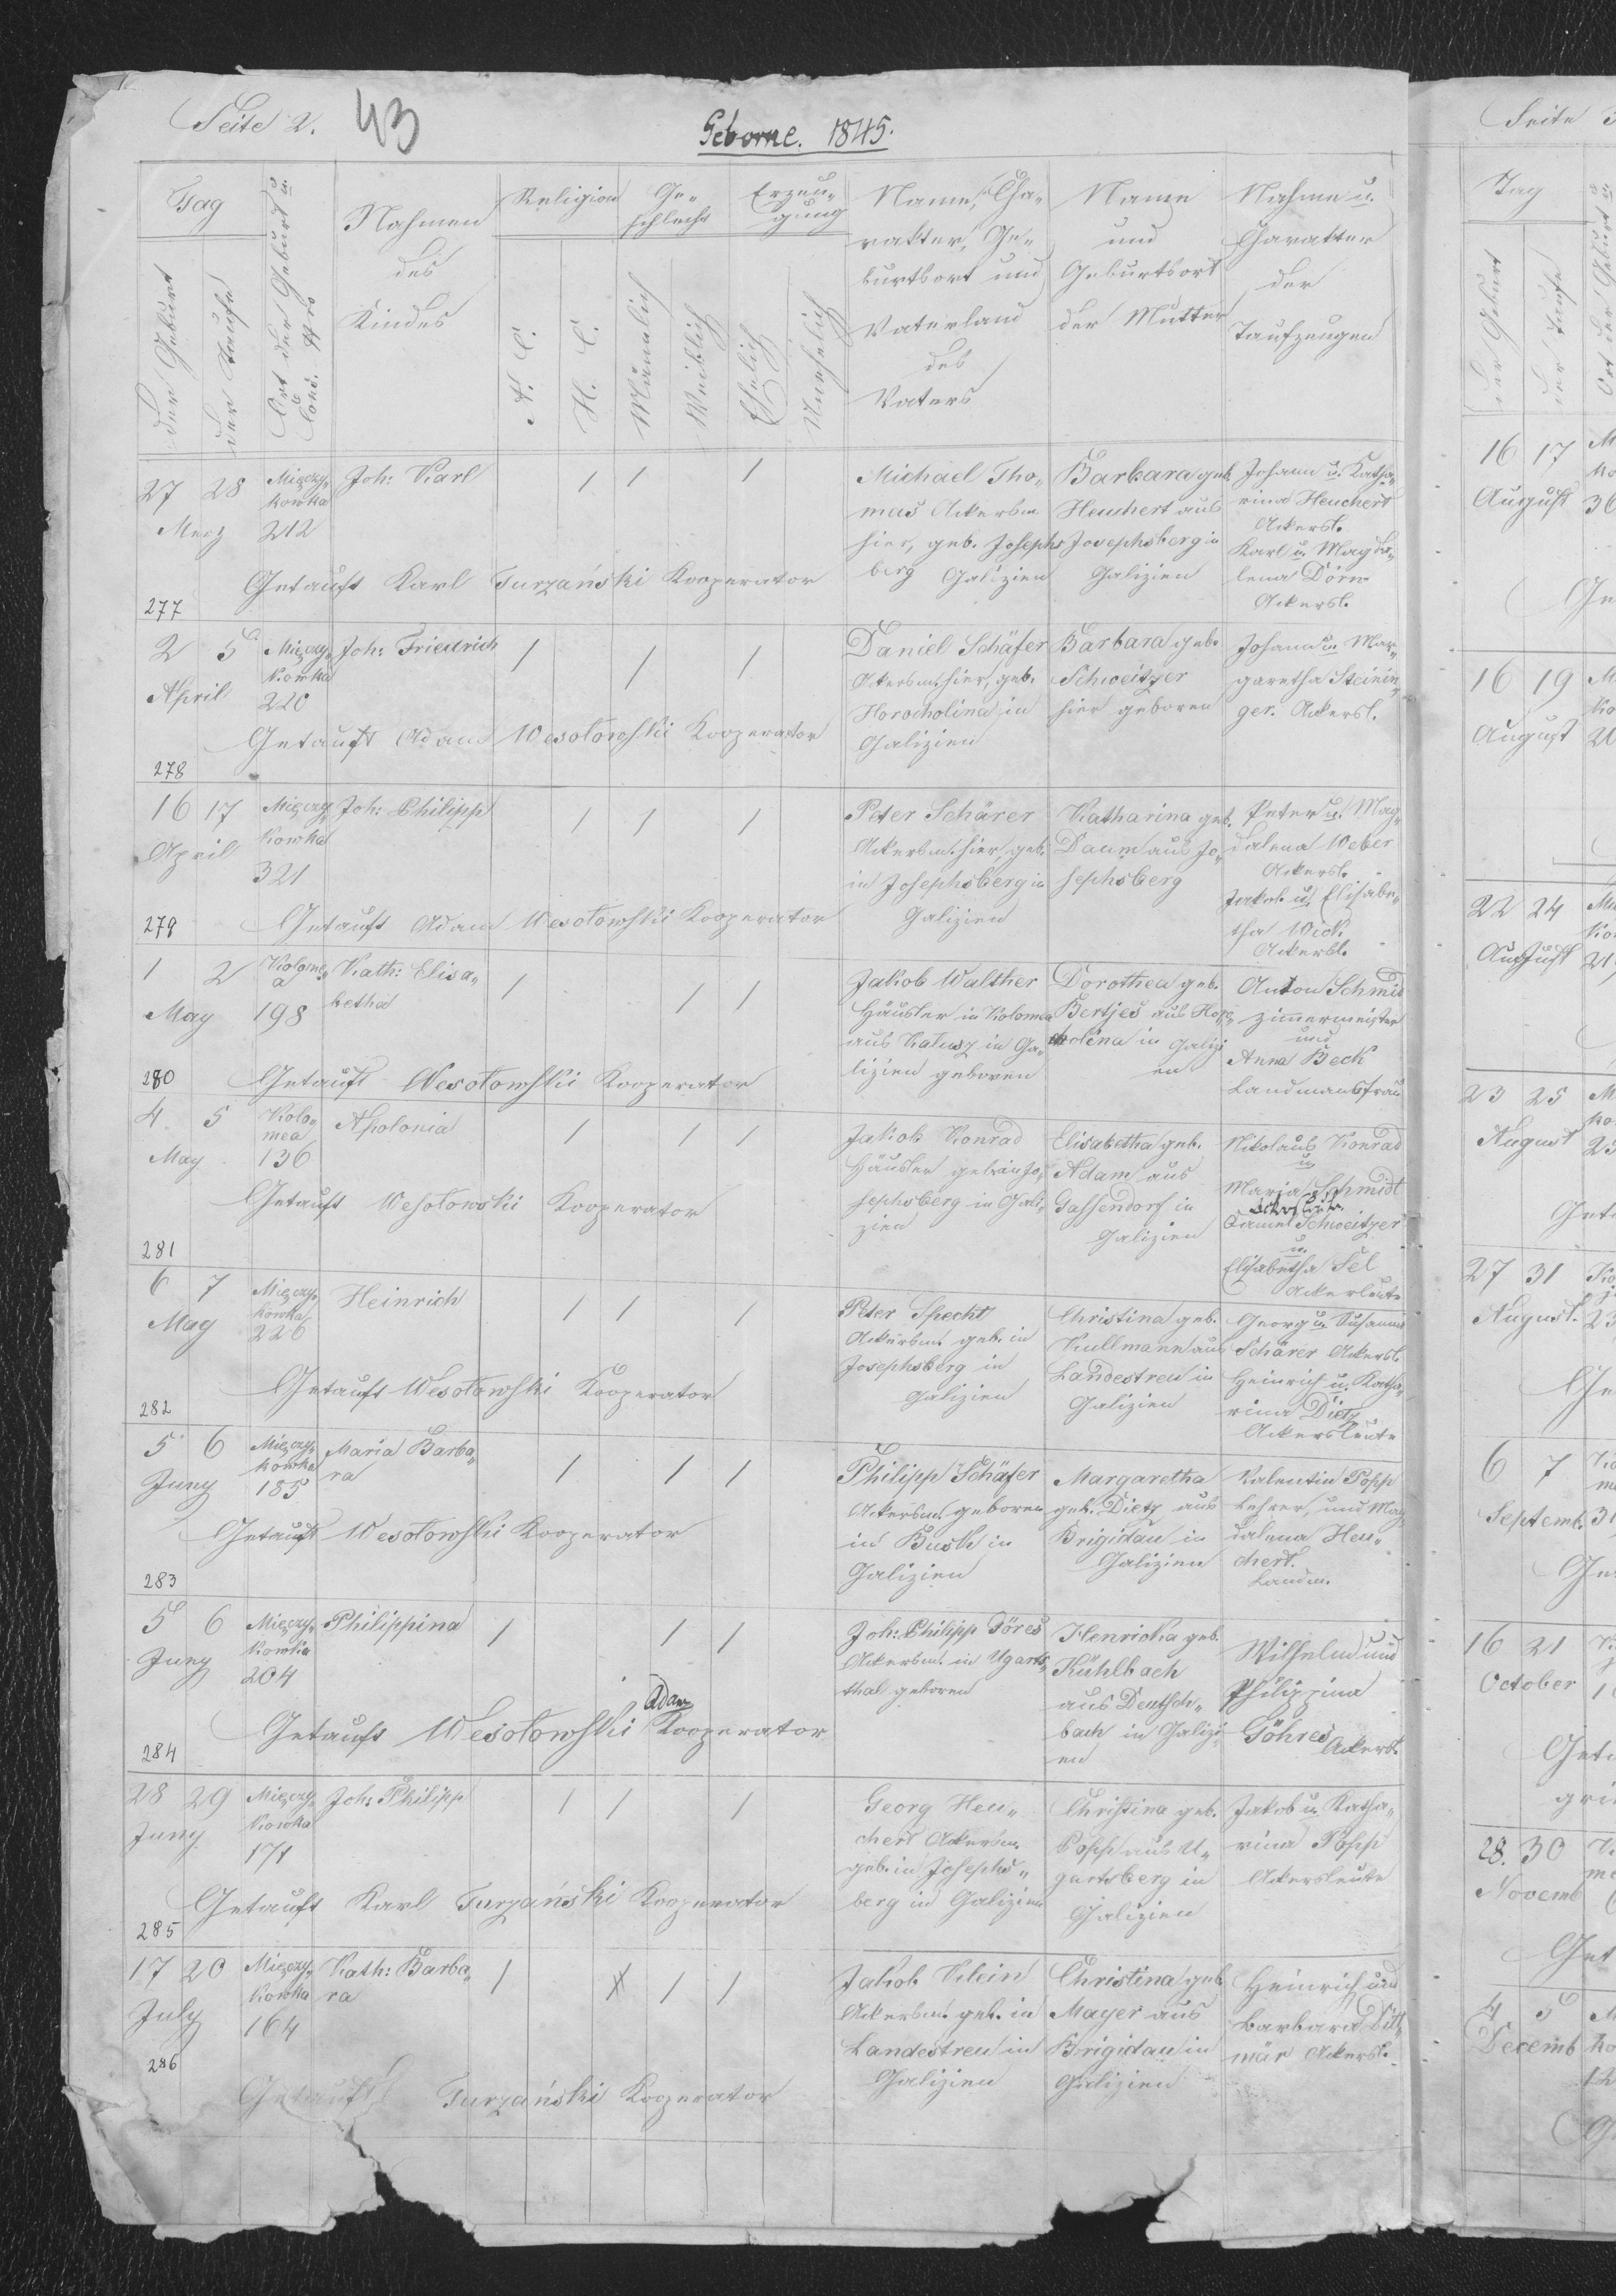 Seite 2.
43
Geborne. 1845.
Tag
der Geburt
der Taufe
Ort der Geburt u.
Cons. Nro
Nahmen
des
Kindes
Religion
A. C.
H. C.
Ge-
schlecht
Mänlich
Weiblich
Erzeu-
gung
Ehelich
Unehelich
Name, Cha-
rakter, Ge-
burtsort und
Vaterland
des
Vaters
Name
und
Geburtsort
der Mutter
Nahme u.
Charakter
der
Taufzeugen
27 28
Merz
Mięczy-
kowka
212
Joh: Karl
1 1 1
Michael Tho-
mas Ackersm
hier, geb. Josephs
berg Galizien
Barbara geb.
Heuchert aus
Josephsberg in
Galizien
Johann u. Katha-
rina Heuchert
Ackersl.
Karl u. Magda-
lena Dörr
Ackersl.
Getauft Karl Turzański Kooperator
277
2 5
April
Mięczy-
kowka
220
Joh: Friedrich
1 1 1
Daniel Schäfer
Ackersm. hier, geb.
Horocholina in
Galizien
Barbara geb.
Schweitzer
hier geboren
Johann u. Mar-
garetha Steinin-
ger. Ackersl.
Getauft Adam Wesołowski Kooperator
278
16 17
April
Mięczy-
kowka
321
Joh: Philipp
1 1 1
Peter Schärer
Ackersm. hier, geb.
in Josephsberg in
Galizien
Katharina geb.
Daum aus Jo-
sephsberg
Peter u. Mag-
dalena Weber
Ackersl.
Jakob u. Elisabe-
tha Wick
Ackersl.
Getauft Adam Wesołowski Kooperator
279
1 2
May
Kolome-
a
198
Kath: Elisa-
betha
1 1 1
Jakob Walther
Häusler in Kolomea
aus Kalusz in Ga-
lizien geboren
Dorothea geb.
Bertjes aus Horo-
cholina in Galizi
en
Anton Schmid
Zimmermeister
und
Anna Beck
Landmansfrau
Getauft Wesołowski Kooperator
280
4 5
May
Kolo-
mea
136
Apolonia
1 1 1
Jakob Konrad
Häusler geb. in Jo-
sephsberg in Gali-
zien
Elisabetha geb.
Adam aus
Gassendorf in
Galizien
Nikolaus Konrad
u.
Maria Schmidt
Ackersleute
Daniel Schweitzer
u.
Elisabetha Fel
Ackerleute
Getauft Wesołowski Kooperator
281
6 7
May
Mięczy-
kowka
226
Heinrich
1 1 1
Peter Specht
Ackersm. geb. in
Josephsberg in
Galizien
Christina geb.
Kullmann aus
Landestreu in
Galizien
Georg u. Susanna
Schärer Ackersl.
Heinrich u. Katha-
rina Dietz
Ackersleute
Getauft Wesołowski Kooperator
282
5 6
Juny
Mięczy-
kowka
185
Maria Barba-
ra
1 1 1
Philipp Schäfer
Ackersm. geboren
in Busk in
Galizien
Margaretha
geb. Dietz aus
Brigidau in
Galizien
Valentin Popp
Lehrer, und Mag-
dalena Heu-
chert.
Landm.
Getauft Wesołowski Kooperator
283
5 6
Juny
Mięczy-
kowka
204
Philippina
1 1 1
Joh: Philipp Göres
Ackersm. in Ugarts-
thal geboren
Henricka geb.
Kühlbach
aus Deutsch-
bach in Galizi-
en
Wilhelm und
Philippina
Göhres
Ackersl.
Adam
Getauft Wesołowski Kooperator
284
28 29
Juny
Mięczy-
kowka
171
Joh: Philipp
1 1 1
Georg Heu-
chert Ackersm.
geb. in Josephs-
berg in Galizien
Christina geb.
Popp aus U-
gartsberg in
Galizien
Jakob u. Katha-
rina Popp
Ackersleute
Getauft Karl Turzański Kooperator
285
17 20
July
Mięczy-
kowka
164
Kath: Barba-
ra
1 1 1
Jakob Klein
Ackersm. geb. in
Landestreu in
Galizien
Christina geb.
Mayer aus
Brigidau in
Galizien
Heinrich und
Barbara Ditt-
mär Ackersl.
286
Getauft Turzański Kooperator
Seite
Tag
der Geburt
der Taufe
Ort der Geburt u
16 17
August
16 19
August
22 24
August
23 25
August
27 31
August.
6 7
Septemb.
16 21
October
28. 30
Novemb
4 5
Decemb